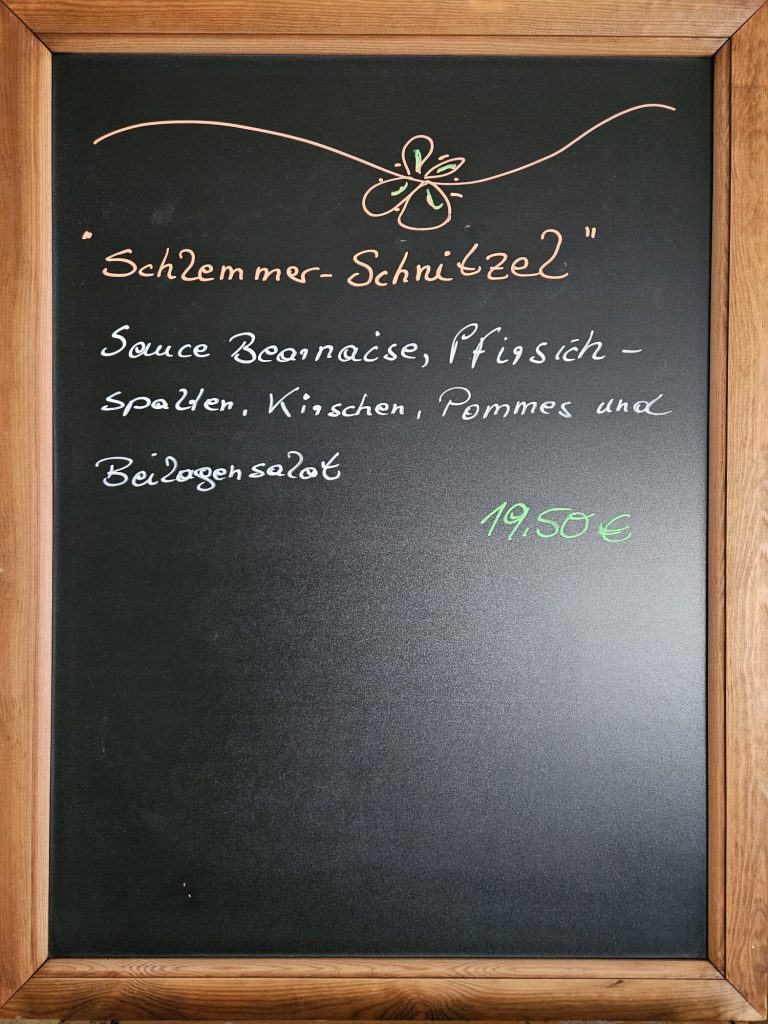 "Schlemmer-Schnitzel"
Sauce Bearnaise, Pfirsich-
spalten, Kirschen, Pommes und
Beilagensalat
19,50 €